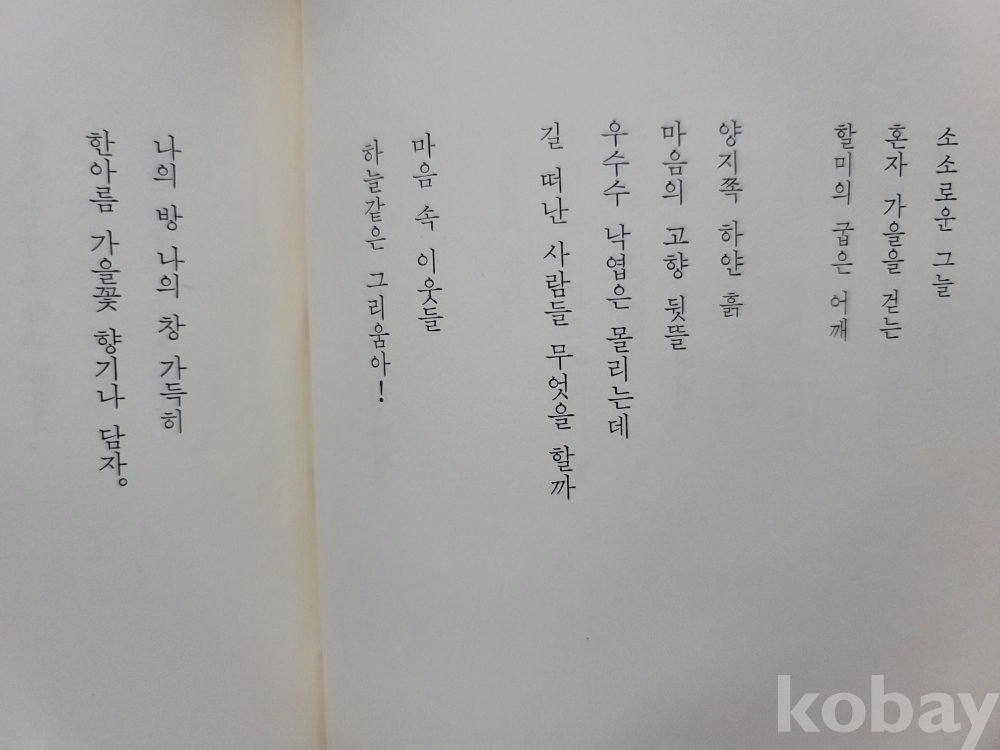 소소로운 그늘
혼자 가을을 걷는
할미의 굽은 어깨
양지쪽 하얀 흙
마음의 고향 뒷뜰
우수수 낙엽은 몰리는데
길 떠난 사람들 무엇을 할까
마음 속 이웃들
하늘같은 그리움아!
나의 방 나의 창 가득히
한아름 가을꽃 향기나 담자。
kobay